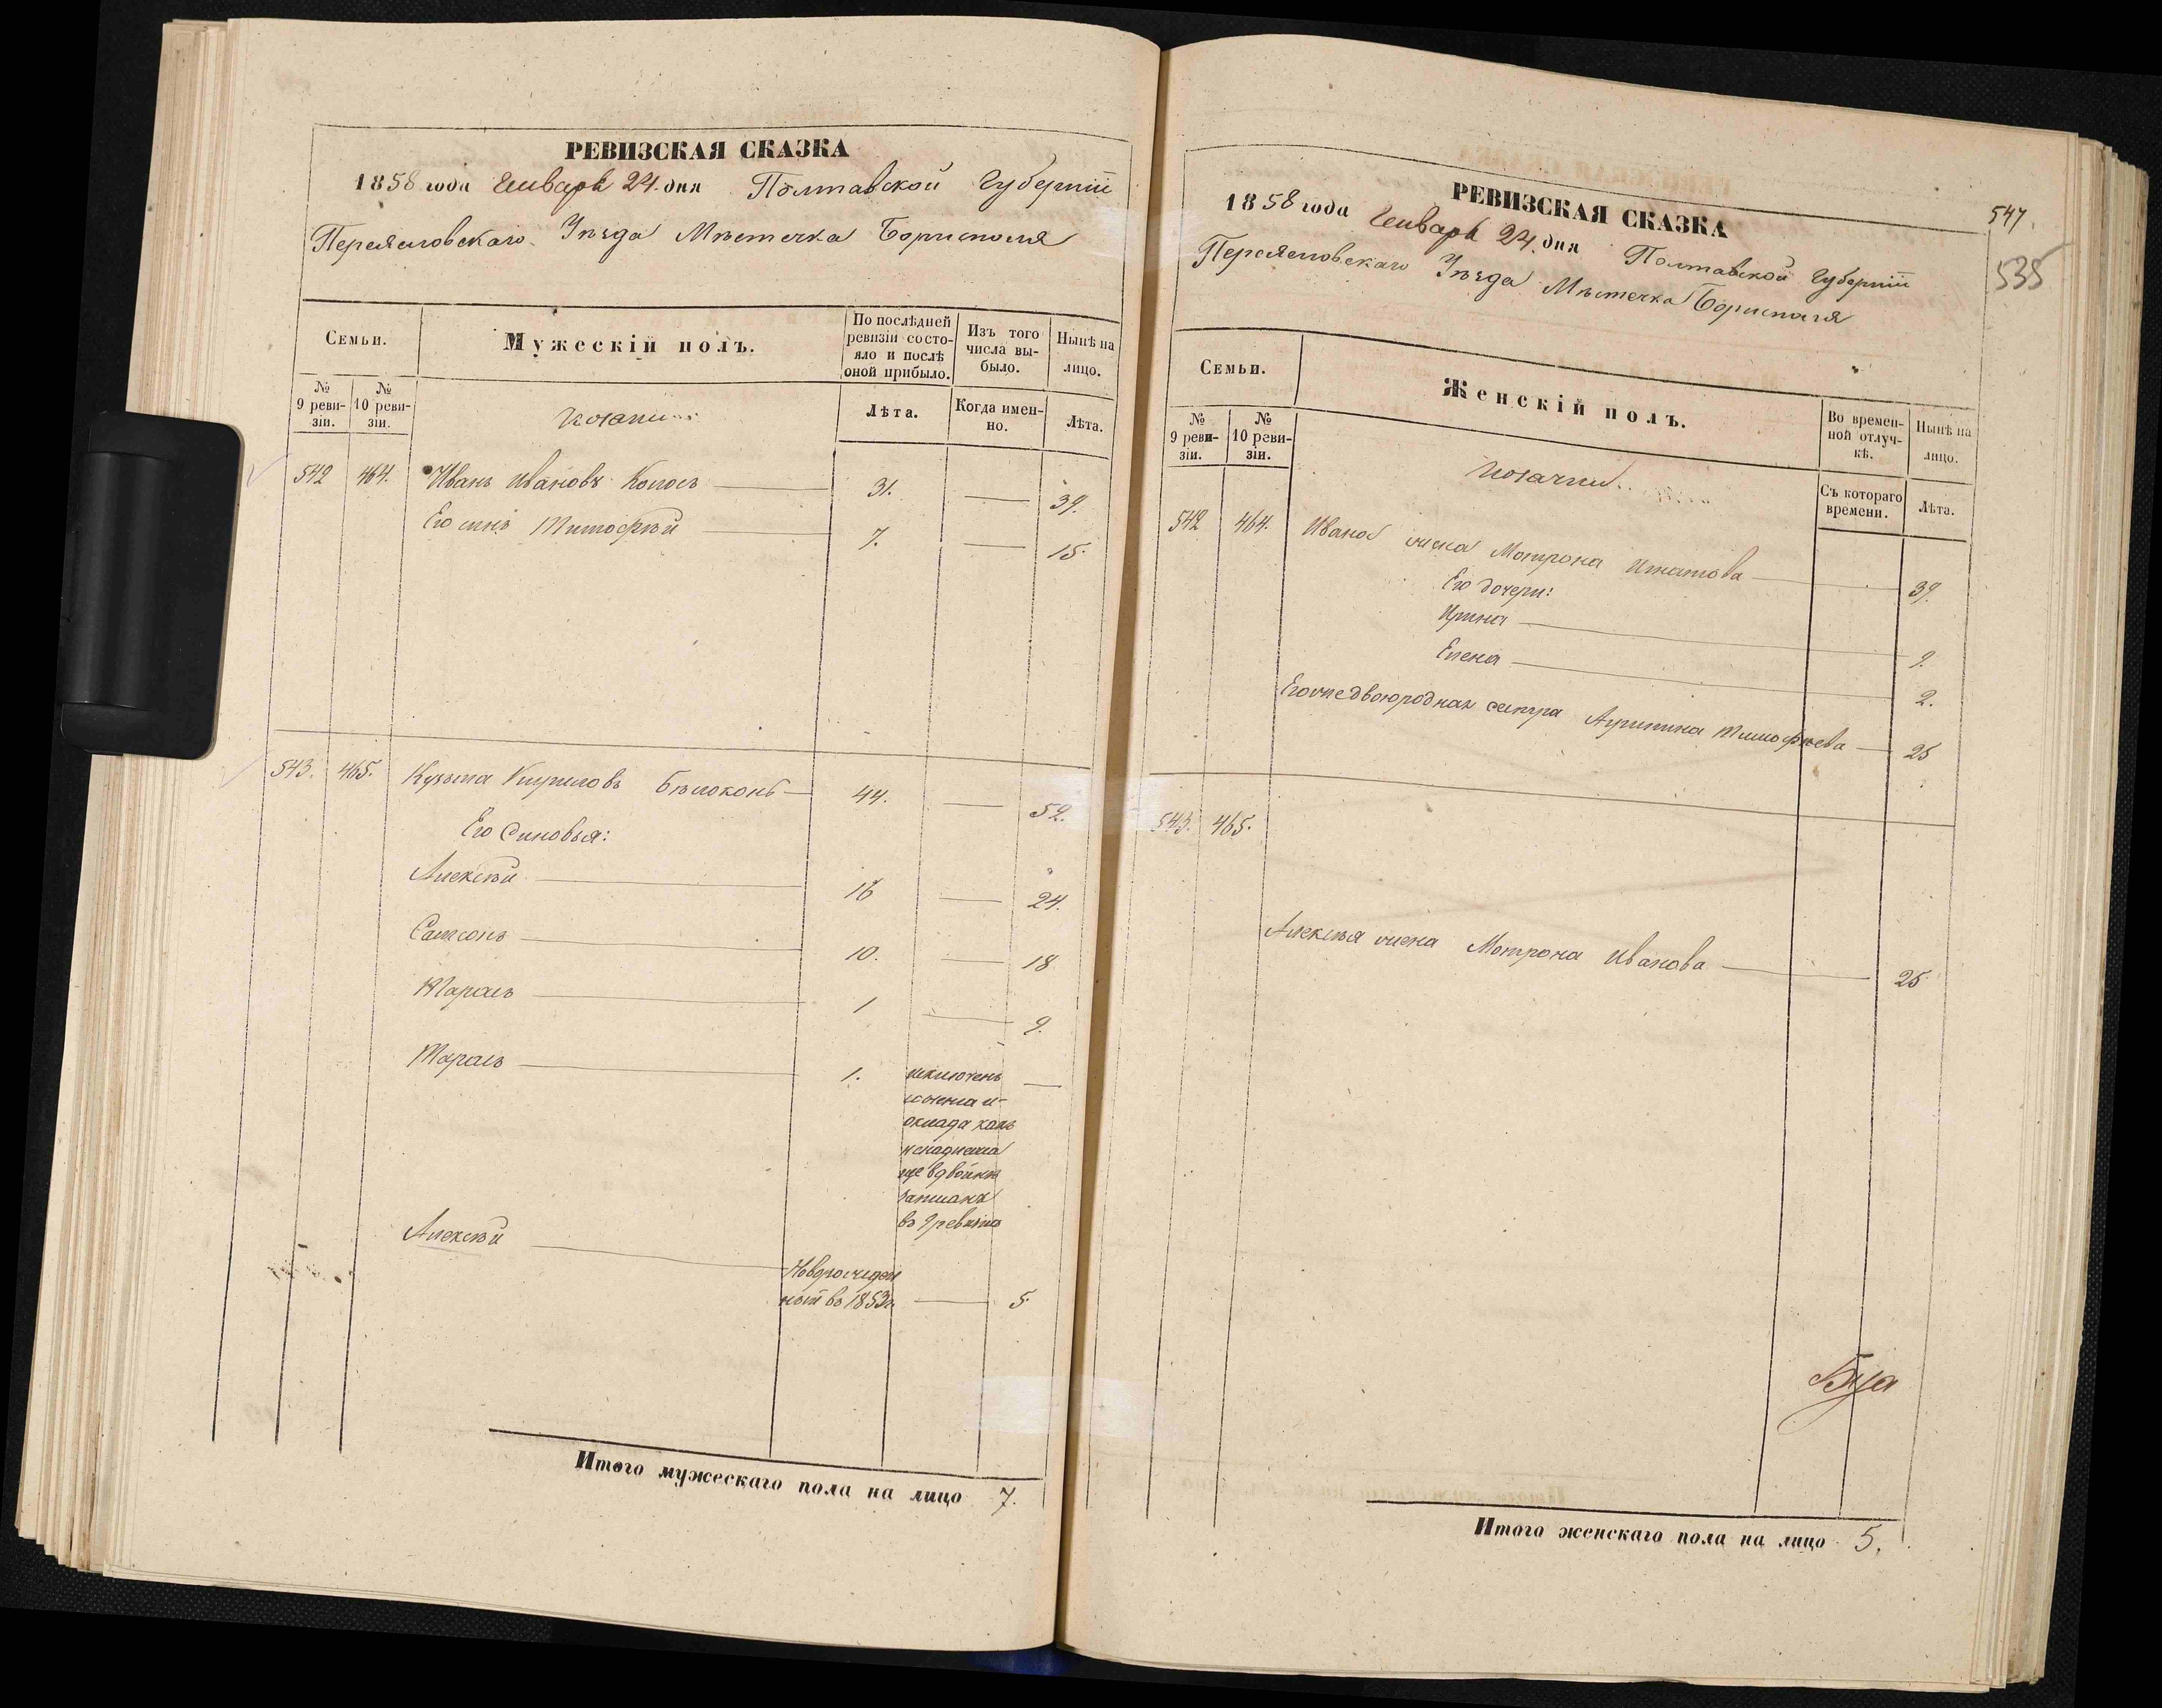 РЕВИЗСКАЯ СКАЗКА
1858 года Генваря 24 дня Полтавской Губерніи
Переяславскаго Уѣзда Мѣстечка Борисполя
Семьи.
Мужескій полъ.
По послѣдней ревизіи состояло и послѣ оной прибыло.
Изъ того числа выбыло.
Нынѣ на лицо.
№ 9 ревизіи.
№ 10 ревизіи.
Лѣта.
Когда именно.
Лѣта.
542 464. Иванъ Ивановъ Колосъ 31. — 39.
Его сынъ Тимофѣй 7. — 15.
543. 465. Кузьма Кириловъ Бѣлоконь 44. — 52.
Его Синовья:
Алексѣй 16 — 24.
Самсонъ 10. — 18
Тарасъ 1 — 9.
Тарасъ 1. исключенъ —
оклада какъ
вдвойнѣ
записанъ
въ 9 ревизію
Алексѣй Новорожден
ный въ 1853 г. — 5.
Итого мужескаго пола на лицо 7.
547.
535
РЕВИЗСКАЯ СКАЗКА
1858 года Генваря 24 дня Полтавской Губерніи
Переяславскаго Уѣзда Мѣстечка Борисполя
Семьи.
Женскій полъ.
Во временной отлучкѣ.
Нынѣ на лицо.
№ 9 ревизіи.
№ 10 ревизіи.
Съ котораго времени.
Лѣта.
542 464. Ивана жена Мотрона Игнатова 39.
Его дочери:
Ирина 9.
Елена 2.
Его же двоюродная сестра Агрипина Тимофѣева 25
543. 465.
Алексѣя жена Мотрона Иванова 25
Итого женскаго пола на лицо 5.